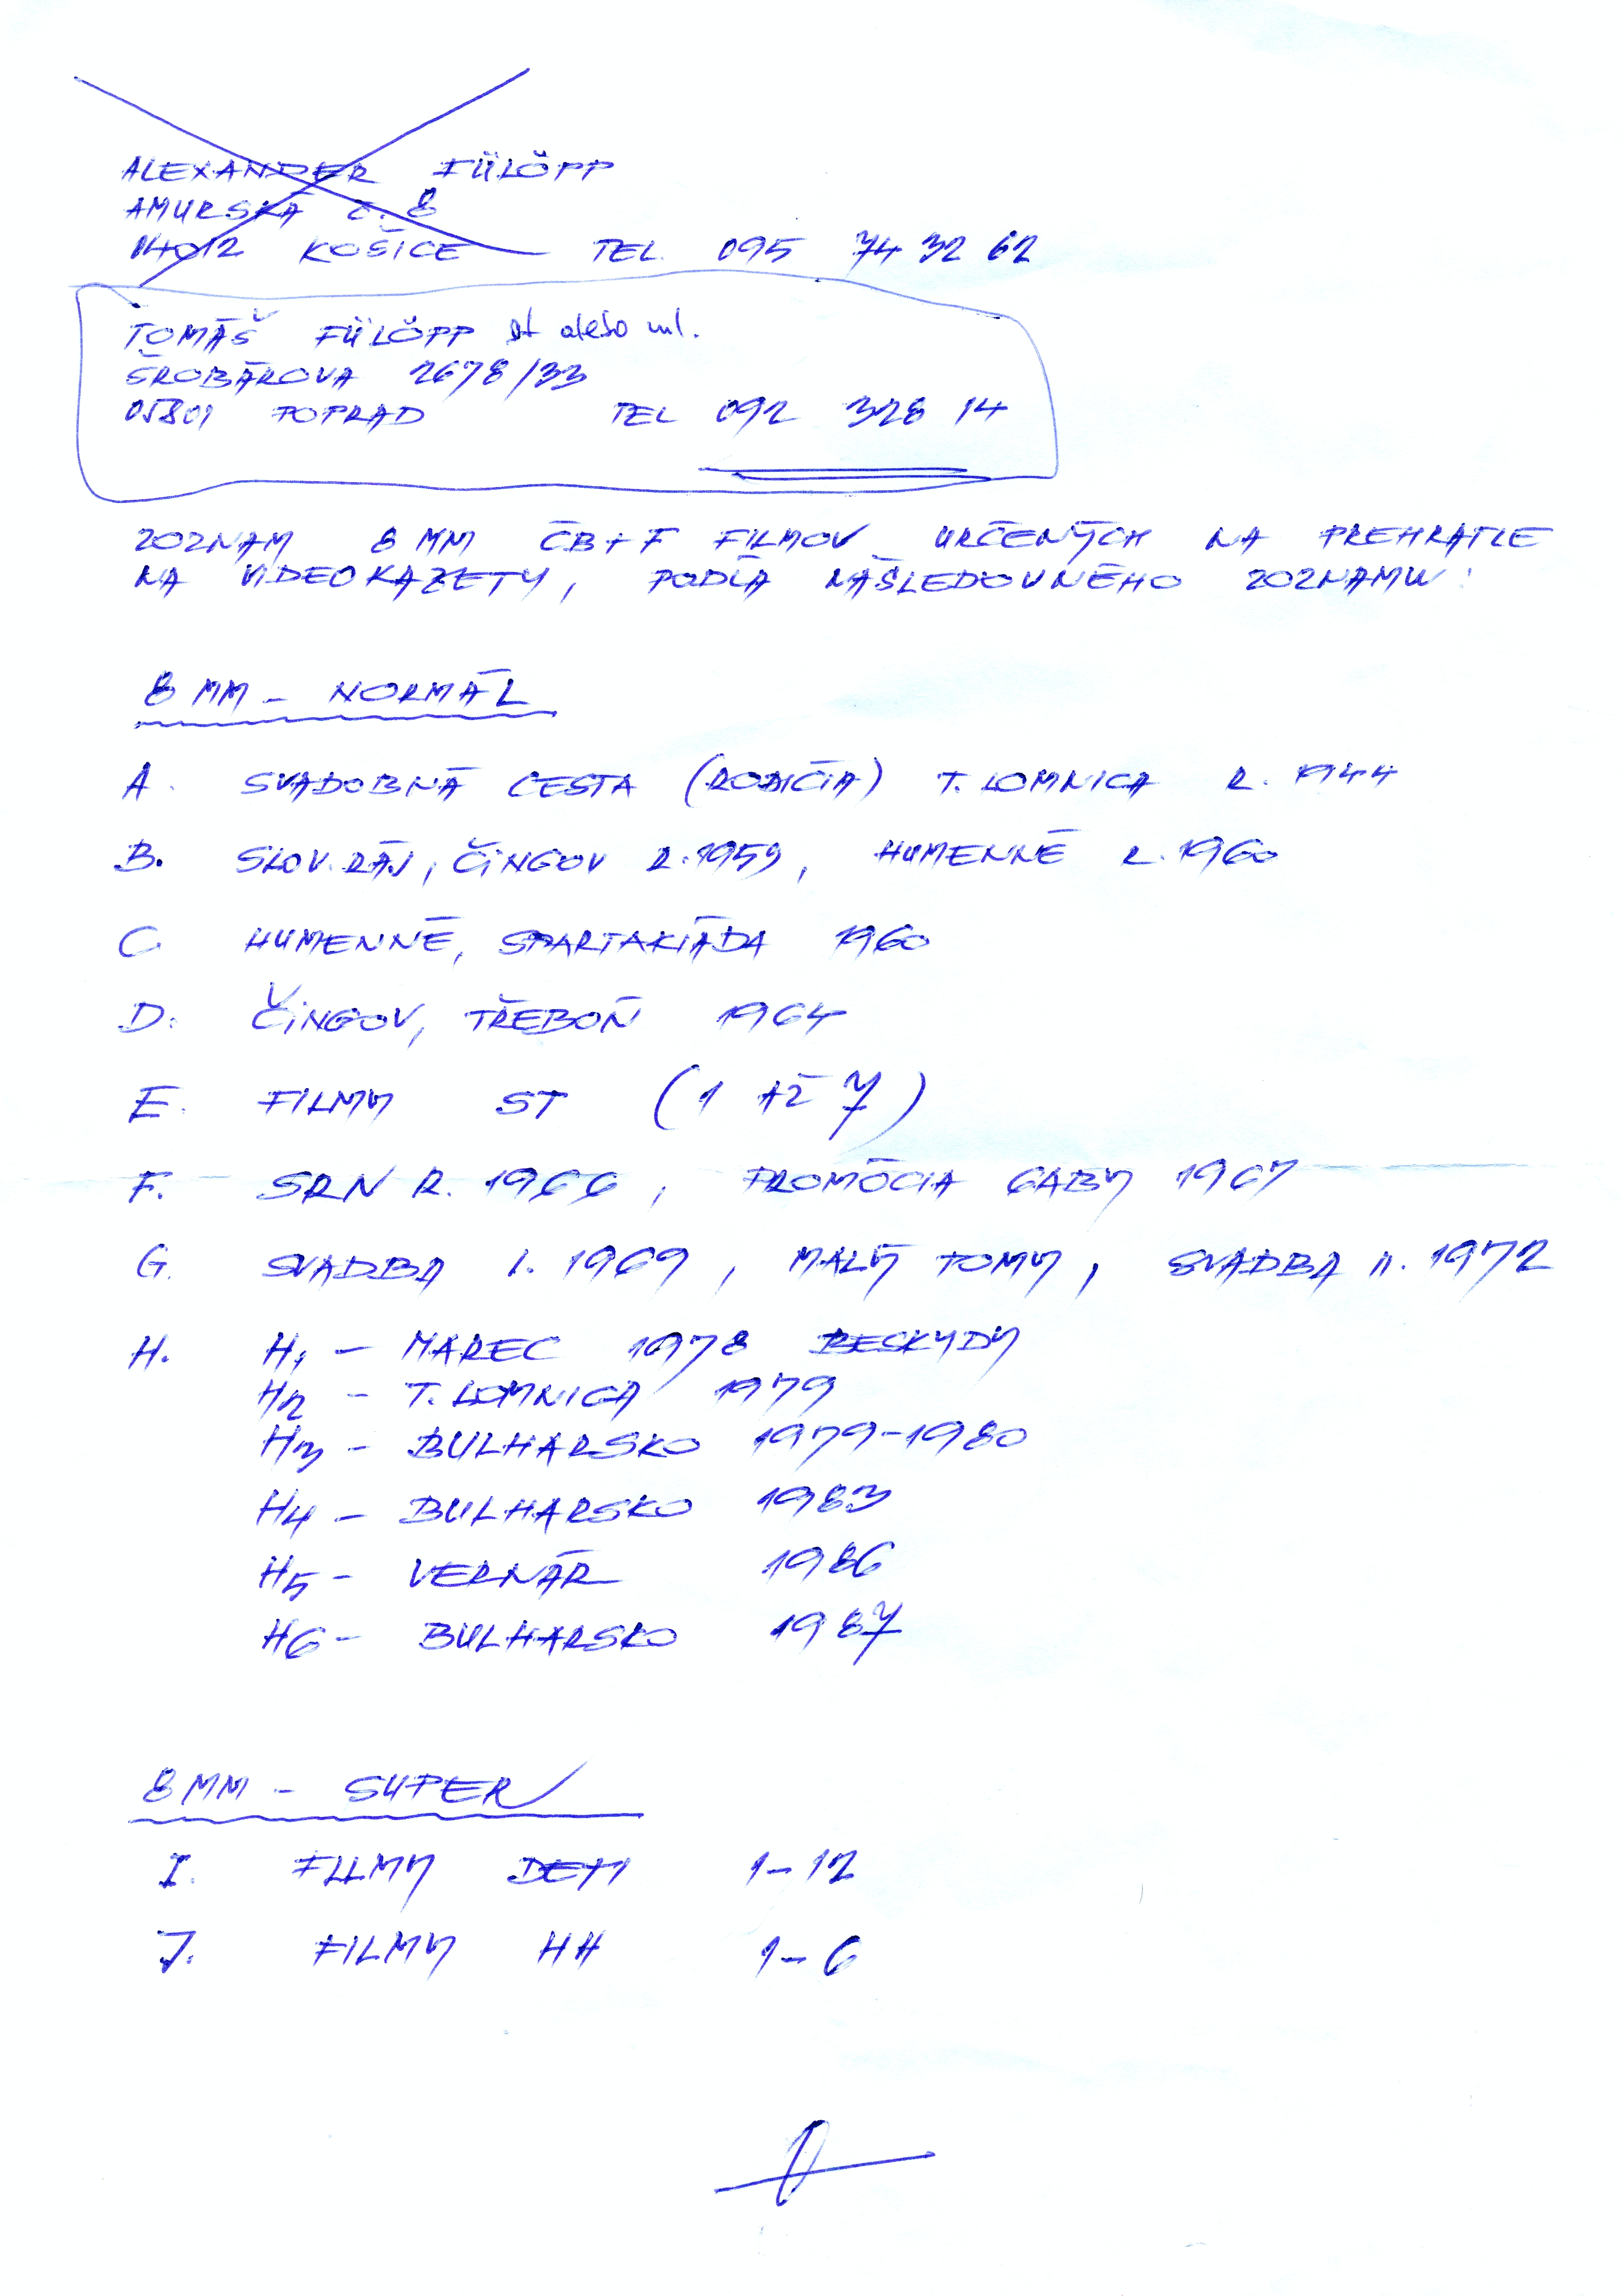 ALEXANDER FÜLÖPP
AMURSKÁ Č. 8
04012 KOŠICE TEL. 095 74 32 62
TOMÁŠ FÜLÖPP st alebo ml.
ŠROBÁROVA 2678/33
05801 POPRAD TEL 092 328 14
ZOZNAM 8 MM ČB+F FILMOV URČENÝCH NA PREHRATIE
NA VIDEOKAZETY, PODĽA NÁSLEDOVNÉHO ZOZNAMU:
8 MM - NORMÁL
A. SVADOBNÁ CESTA (RODIČIA) T. LOMNICA R. 1944
B. SLOV. RÁJ, ČINGOV R. 1959, HUMENNÉ R. 1960
C. HUMENNÉ, SPARTAKIÁDA 1960
D. ČINGOV, TŘEBOŇ 1964
E. FILMY ST (1 AŽ 7)
F. SRN R. 1966, PROMÓCIA GABY 1967
G. SVADBA I. 1969, MALÝ TOMY, SVADBA II. 1972
H. H1 - MAREC 1978 BESKYDY
H2 - T. LOMNICA 1979
H3 - BULHARSKO 1979-1980
H4 - BULHARSKO 1983
H5 - VERNÁR 1986
H6 - BULHARSKO 1987
8 MM - SUPER
I. FILMY DETI 1-12
J. FILMY HH 1-6